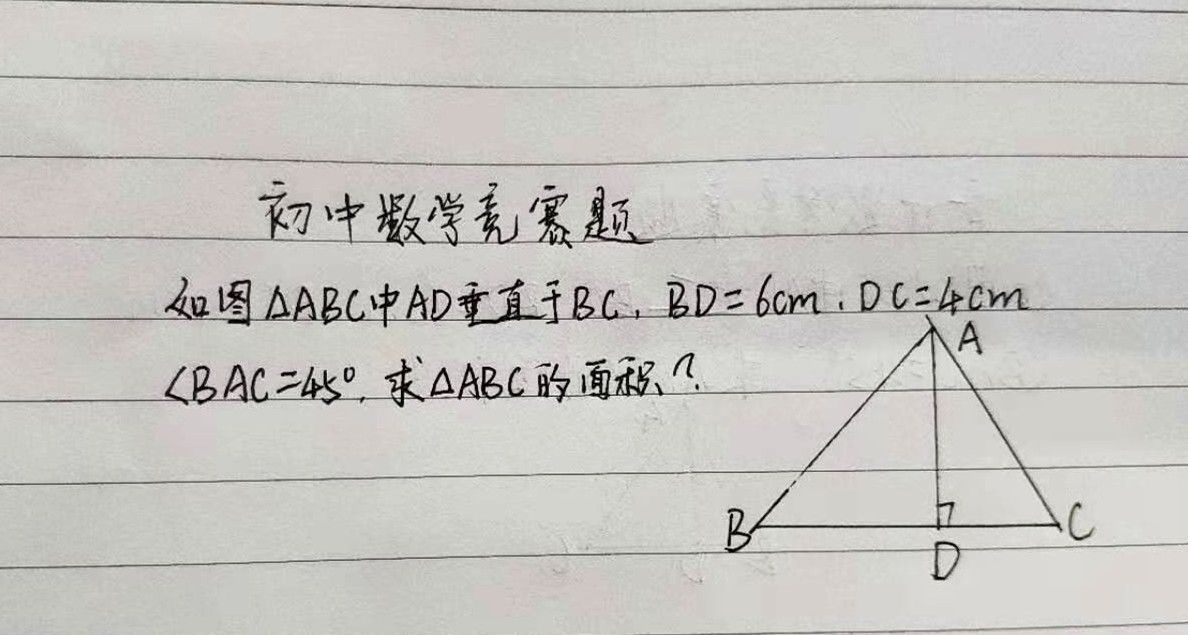 初中数学竞赛题
如图△ABC中AD垂直于BC，BD=6cm．DC=4cm
∠BAC=45°，求△ABC的面积？
A
B
C
D